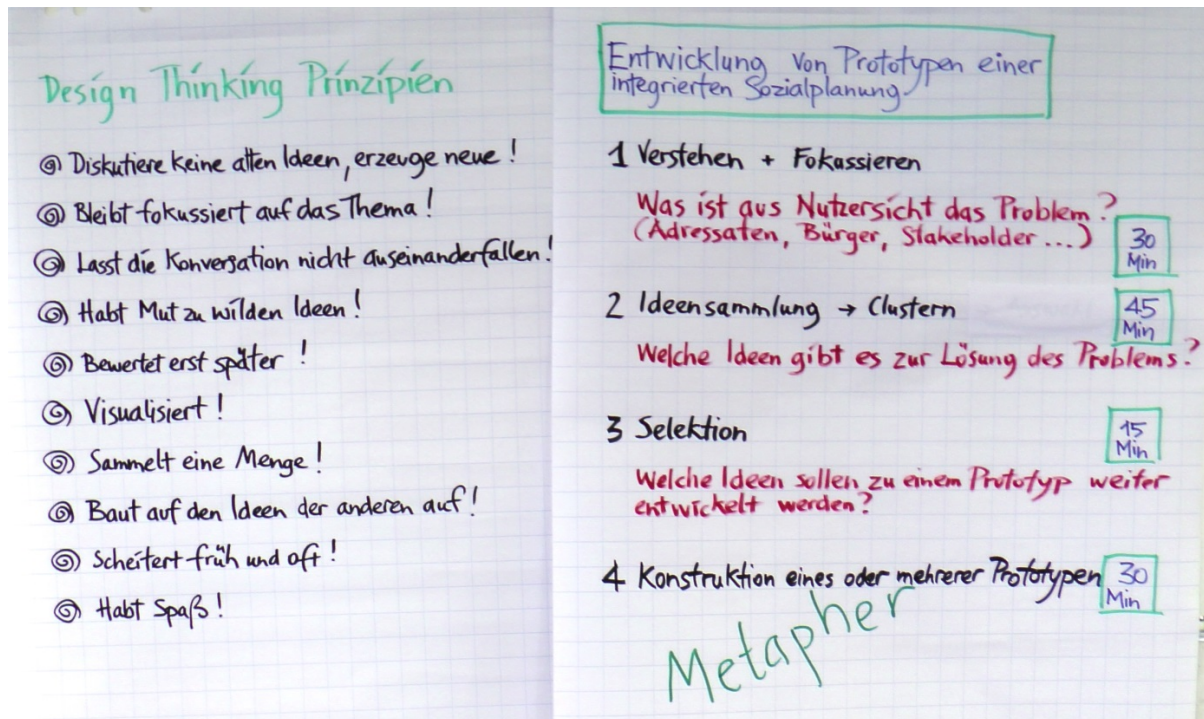 Design Thinking Prinzipien
Diskutiere keine alten Ideen, erzeuge neue!
Bleibt fokussiert auf das Thema!
Lasst die Konversation nicht auseinanderfallen!
Habt Mut zu wilden Ideen!
Bewertet erst später!
Visualisiert!
Sammelt eine Menge!
Baut auf den Ideen der anderen auf!
Scheitert früh und oft!
Habt Spaß!
Entwicklung von Prototypen einer
integrierten Sozialplanung
1 Verstehen + Fokassieren
Was ist aus Nutzersicht das Problem?
(Adressaten, Bürger, Stakeholder ...)
30
Min
2 Ideensammlung → Clustern
45
Min
Welche Ideen gibt es zur Lösung des Problems?
3 Selektion
15
Min
Welche Ideen sollen zu einem Prototyp weiter
entwickelt werden?
4 Konstruktion eines oder mehrerer Prototypen
30
Min
Metapher